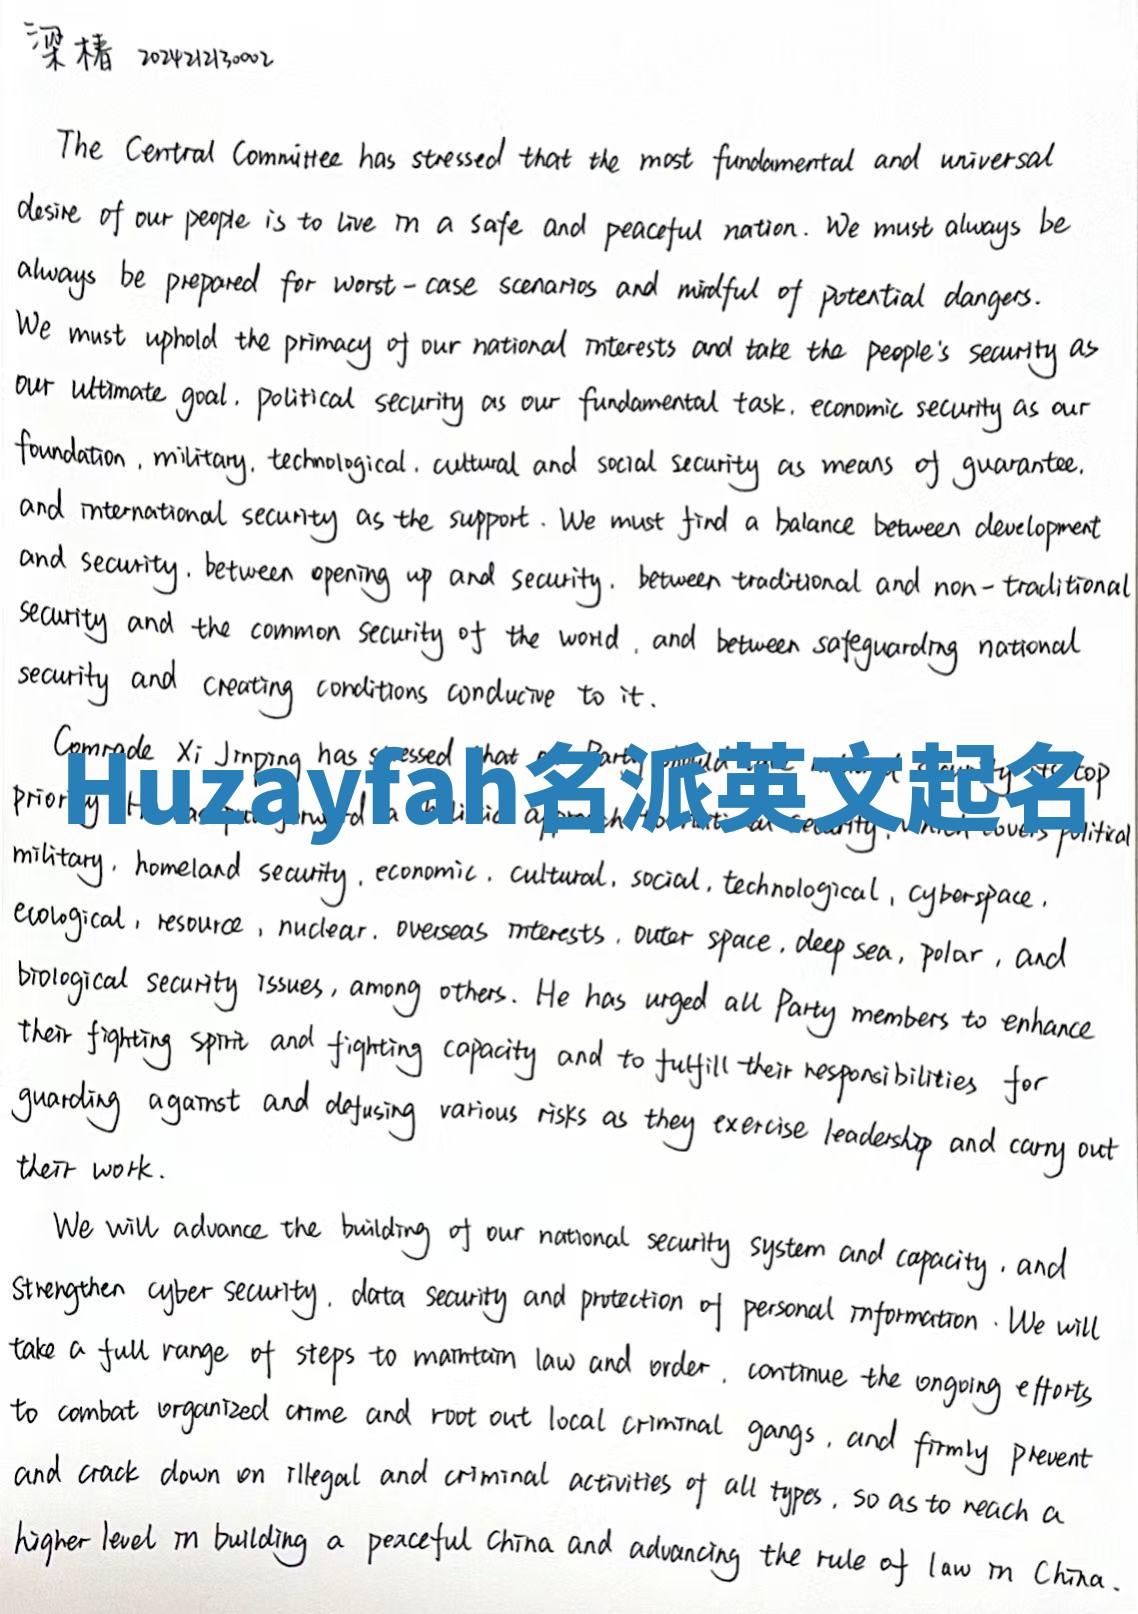 梁椿 2024212130002
The Central Committee has stressed that the most fundamental and universal
desire of our people is to live in a safe and peaceful nation. We must always be
always be prepared for worst-case scenarios and mindful of potential dangers.
We must uphold the primacy of our national interests and take the people's security as
our ultimate goal, political security as our fundamental task, economic security as our
foundation, military, technological, cultural and social security as means of guarantee,
and international security as the support. We must find a balance between development
and security, between opening up and security, between traditional and non-traditional
security and the common security of the world, and between safeguarding national
security and creating conditions conducive to it.
Comrade Xi Jinping has stressed that Party top
Huzayfah名派英文起名
priority a security, which covers political
military, homeland security, economic, cultural, social, technological, cyberspace,
ecological, resource, nuclear, overseas interests, outer space, deep sea, polar, and
biological security issues, among others. He has urged all Party members to enhance
their fighting spirit and fighting capacity and to fulfill their responsibilities for
guarding against and defusing various risks as they exercise leadership and carry out
their work.
We will advance the building of our national security system and capacity, and
strengthen cyber security, data security and protection of personal information. We will
take a full range of steps to maintain law and order, continue the ongoing efforts
to combat organized crime and root out local criminal gangs, and firmly prevent
and crack down on illegal and criminal activities of all types, so as to reach a
higher level in building a peaceful China and advancing the rule of law in China.